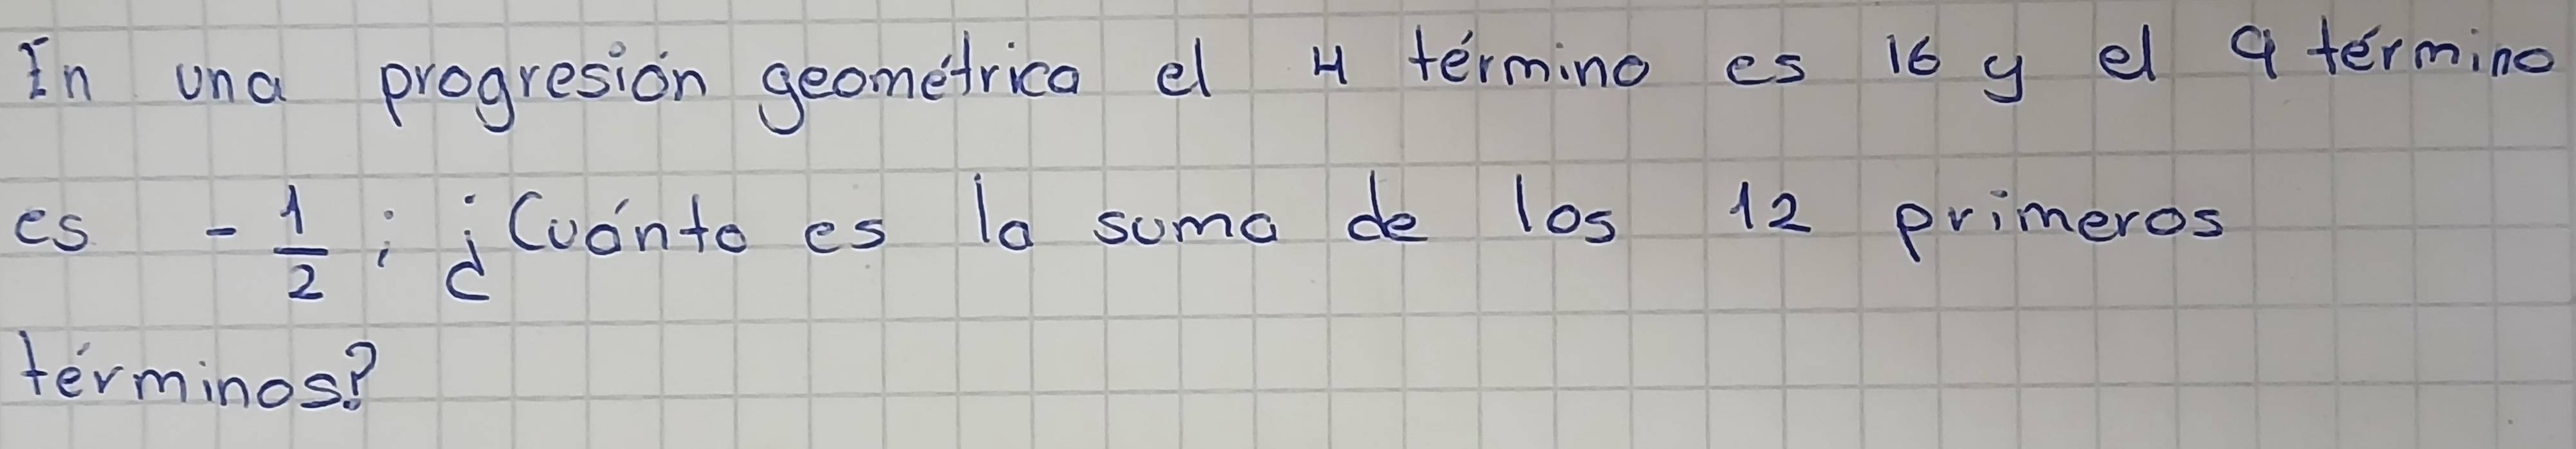 In una progresión geométrica el 4 término es 16 y el 9 término
es -1/2; ¿Cuánto es la suma de los 12 primeros
términos?